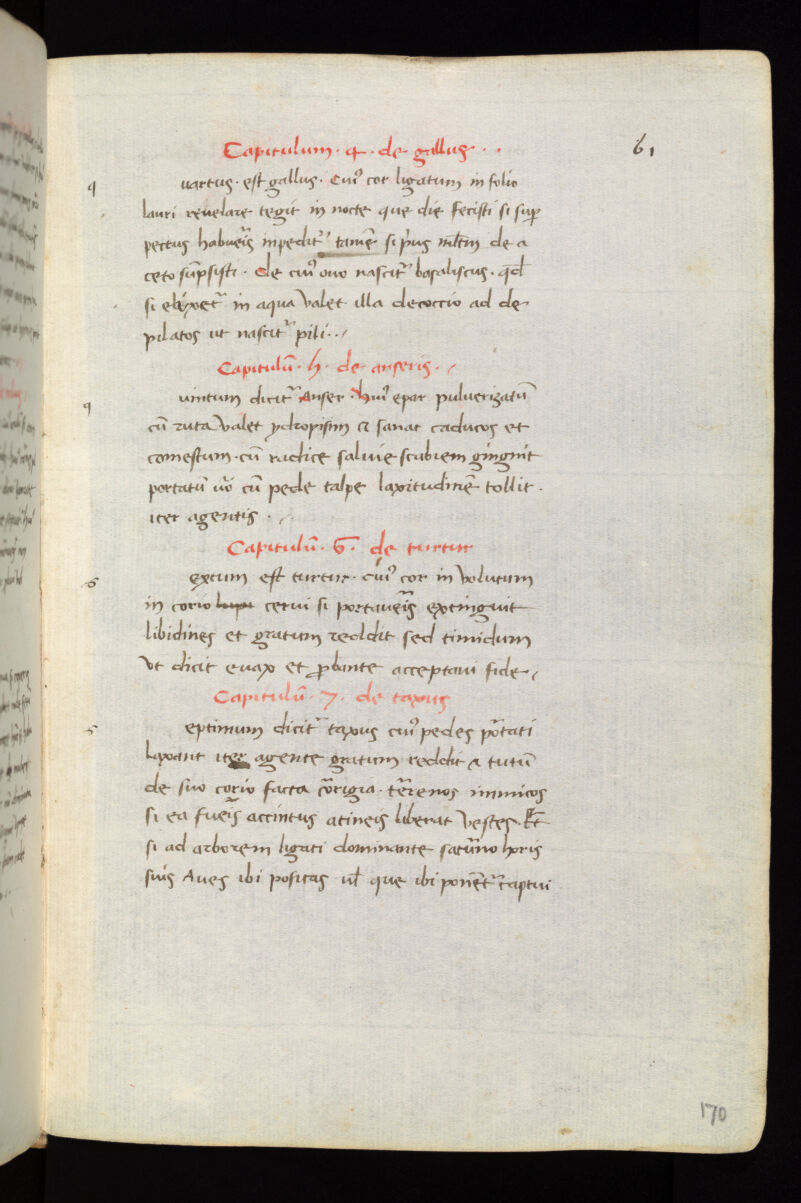 Capitulum · 4 · de gallus · ·
61
q uartus · est gallus · Cui9 cor ligatum in folio
lauri reuelare tegit in nocte que die fecisti si sup
pectus habueis inpedit tamē si pius
ceto sūpsisti · De cui9 ouo nascit basaliscus · qd
si elixet in aqua valet illa decoccio ad de
pilatos ut nascit pili · ·
Capitulū · h · de anseris ·
q uintum dicit Anser · hui9 epar puluerizatū
cū ruta valet ydropisim sanat caducos et
comestum · cū radice saluie scabiem gingnit
portatū cū pede talpe laxitudinē tollit ·
iter agentis ·
Capitulū · 6 · de turtur
s extum est turtur · cui9 cor in volutum
in corio cerui si portaueis extinguit
libidines et gratum reddit sed timidum
vt dicit euax et pbante acceptaui fide
Capitulū · 7 · de taxus
s eptimum dicit taxus cui9 pedes ptati
laxant iter agente gratum reddit a tutū
de suo corio facta corigia · terrenos inimicos
si ea fueis accintus a tineis liberat vestes ·
si ad arborem ligati dominante satuno horis
suis Aues ibi positas ul que ibi ponēt captiui
170